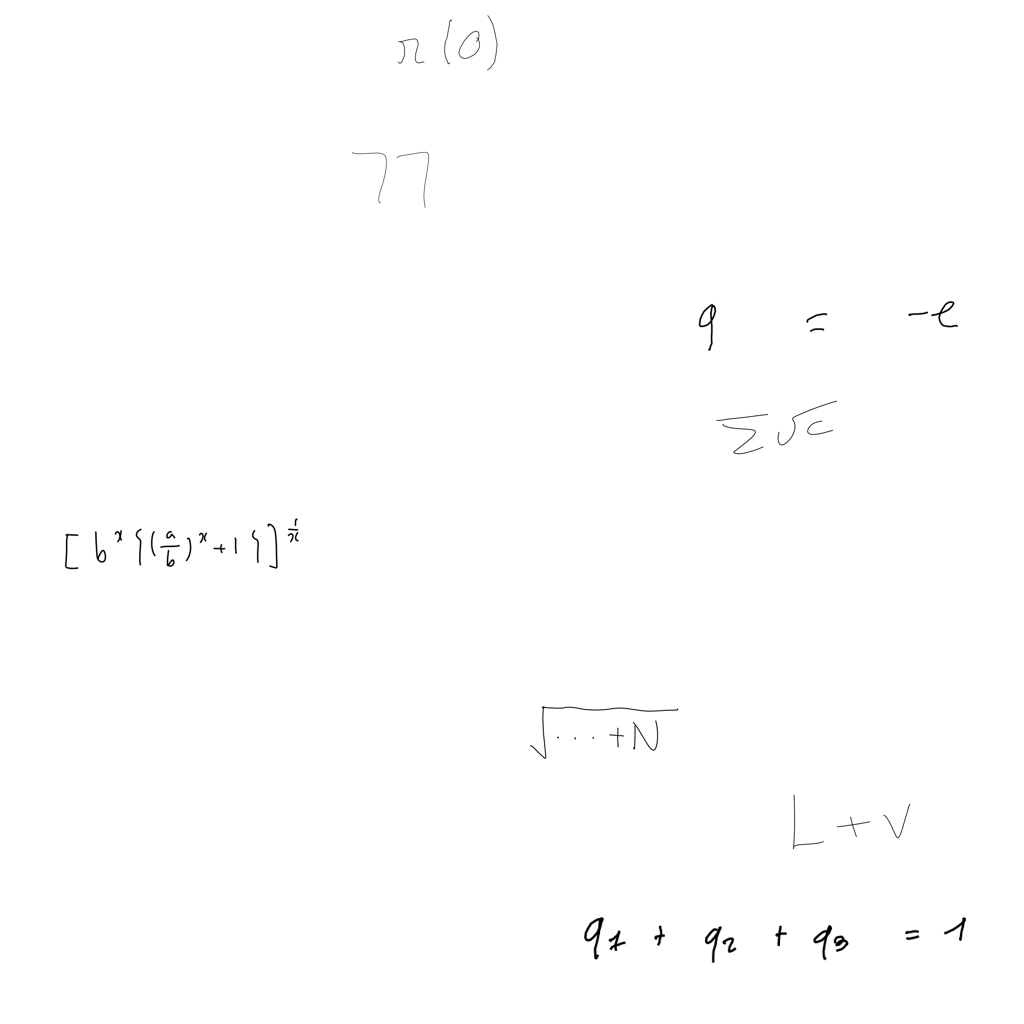 r(0)
77
q = -e
∑√c
[b^x{(a/b)^x+1}]^{1/x}
√(...+N)
L+V
q₁ + q₂ + q₃ = 1